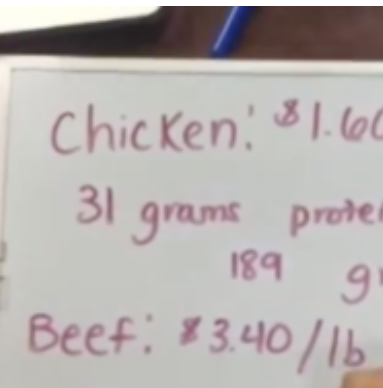 Chicken: $1.60
31 grams
189
Beef: $3.40/lb